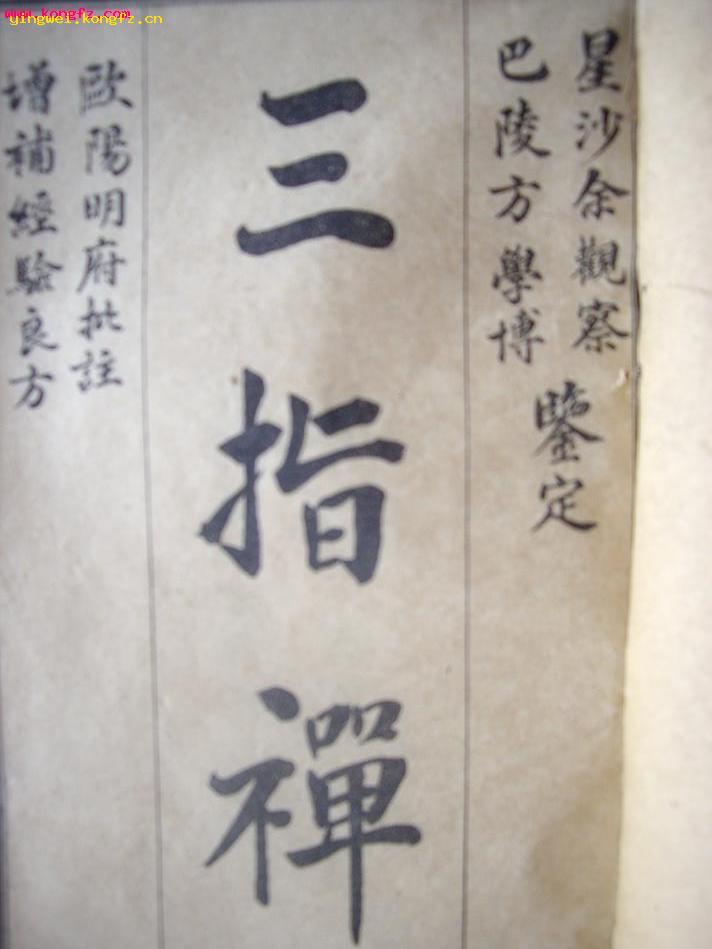 www.kongfz.com
yingwei.kongfz.cn
星沙余觀察
巴陵方學博
鑒定
三指禪
歐陽明府批註
增補經驗良方